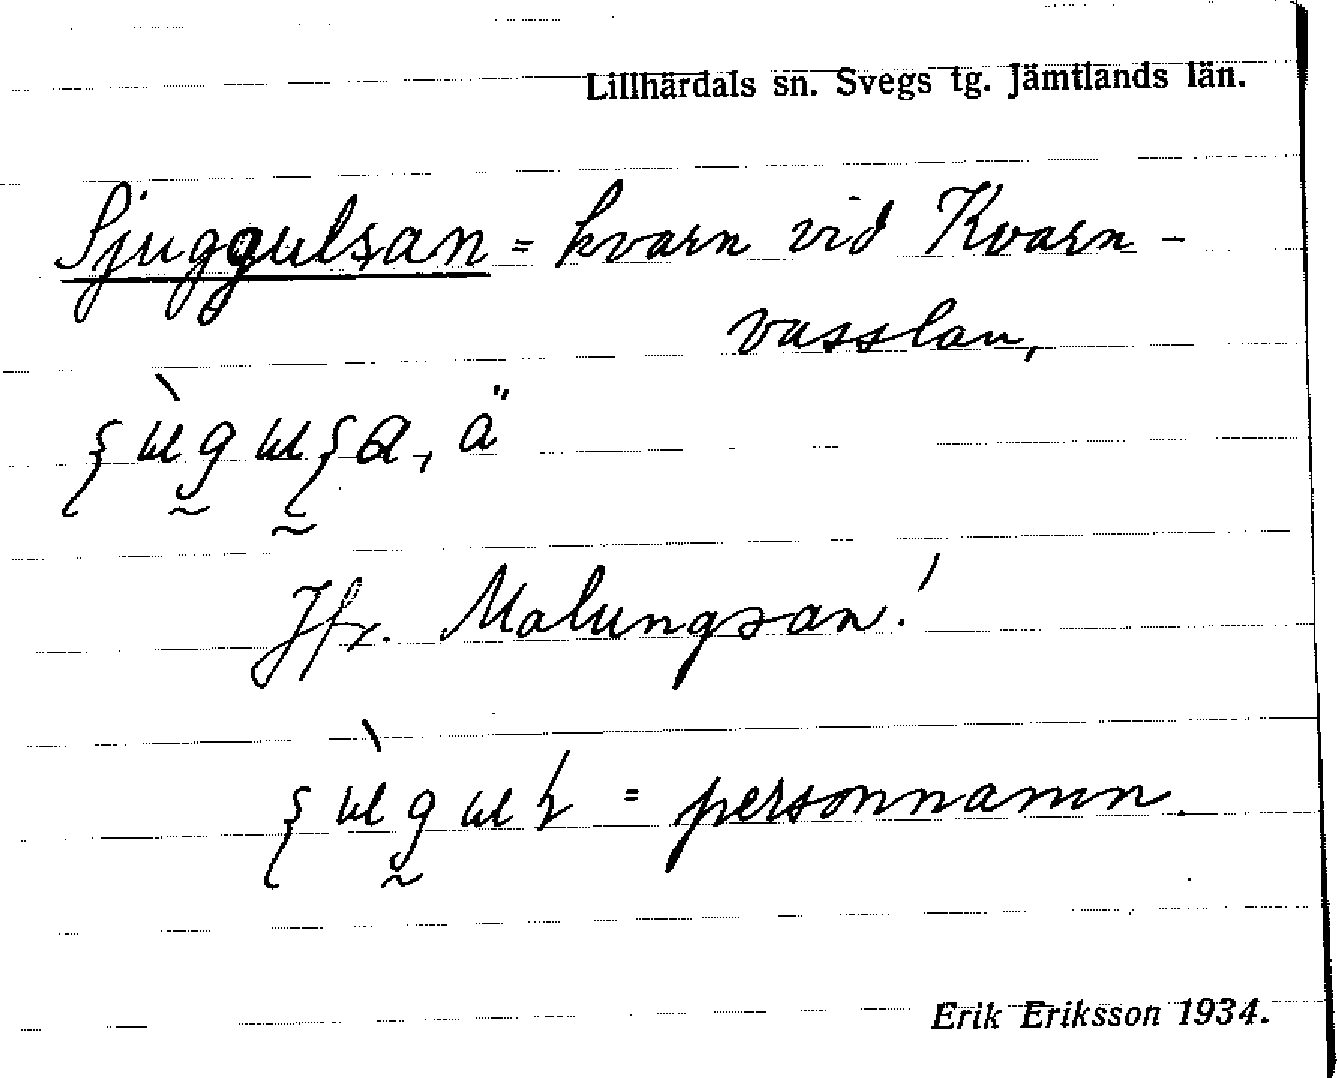 Lillhärdals sn. Svegs tg. Jämtlands län.
Sjuggulsan = kvarn vid Kvarn-
vasslan,
Jfr. Malungsan!
= personnamn.
Erik Eriksson 1934.